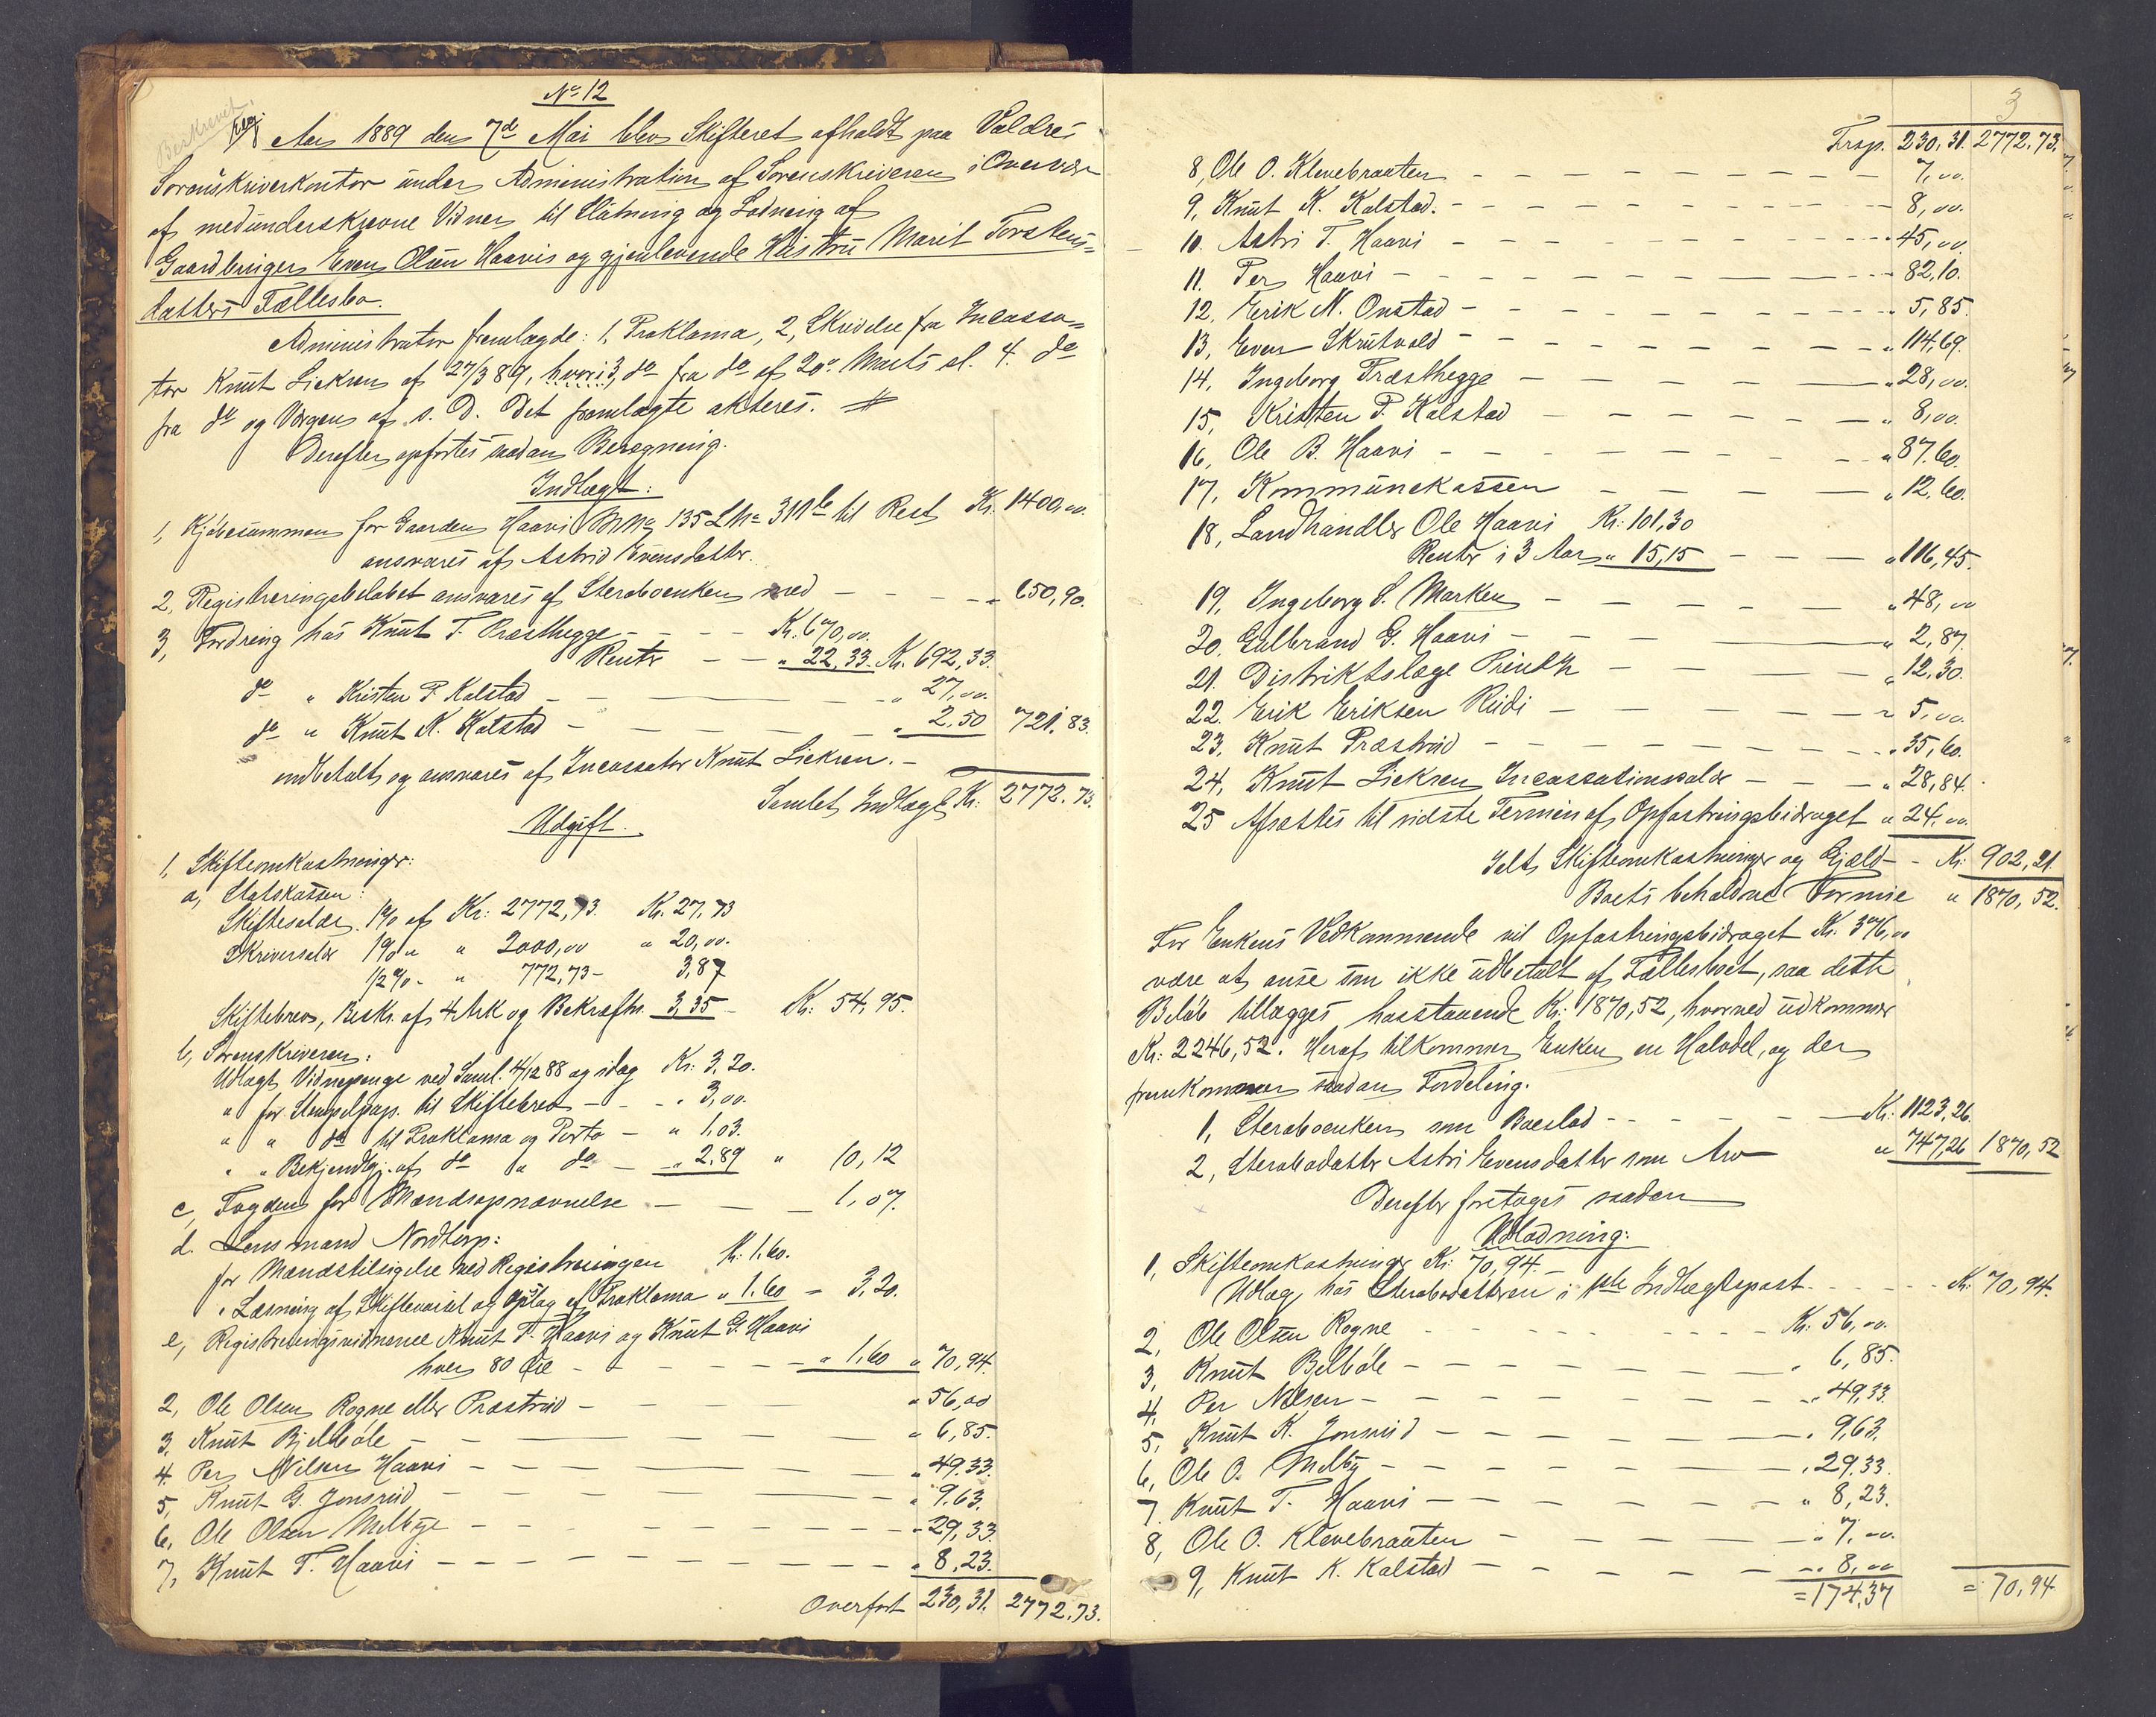 No 12
Beskrevet.
Reg.
Aar 1889 den 7d Mai blev Skifteret afholdt paa Valdres
Sorenskriverkontor under Administration af Sorenskriveren i Overvær
af medunderskrevne Vidner til Slutning og Lodning af
Gaardbruger Even Olsen Haavis og gjenlevende Hustru Marit Torstens-
datters Fællesbo.
Administrator fremlagde: 1, Proklama, 2, Skrivelse fra Incassa-
tor Knut Liekren af 27/3 89, hvori 3, do fra do af 20de Marts sl. 4. do
fra do og Værgen af s. D. Det fremlagte akteres. #
Derefter opførtes saadan Beregning.
Indtægt:
1, Kjøbesummen for Gaarden Haavi M.No 135 L.No 311b til Rest Kr. 1400,00.
ansvares af Astrid Evensdatter.
2, Registreringsbeløbet ansvares af Sterboenken med — — — — " 650,90.
3, Fordring hos Knut T. Præsthegge — — — Kr. 670,00.
Renter — — " 22,33. Kr. 692,33.
do " Kristen P. Kalstad — — — " 27,00.
do " Knut K. Kalstad — — — " 2.50 721.83.
indbetalt og ansvares af Incassator Knut Liekren. —
Samlet Indtægt Kr: 2772.73.
Udgift.
1, Skifteomkostninger:
a, Statskassen:
Skiftesalær 1% af Kr: 2772,73. Kr. 27,73
Skriversalær 1% " " 2000,00 " 20,00.
1/2 % " " 772,73 — 3,87
Skiftebrev, Beskr. af 4 Ark og Bekræftn. 3,35 — Kr: 54,95.
b, Sorenskriveren:
Udlagt Vidnepenge ved Saml. 4/12 88 og idag Kr: 3,20.
" for Stempelpap. til Skiftebrev — — " 3,00.
" " do til Proklama og Porto — " 1,03.
" " Bekjendtgj. af do " do — " 2,89 " 10,12
c, Fogden for Mændsopnævnelse — — — 1,07.
d. Lensmand Nordtorp:
for Mændstilsigelse ved Registreringen Kr: 1.60.
" Læsning af Skiftevarsel og Opslag af Proklama " 1.60 — 3,20.
e, Registreringsvidnerne Knut T. Haavi og Knut G. Haavi
hver 80 Øre — — — — — " 1,60 " 70,94.
2, Ole Olsen Rogne eller Præstrud — — — " 56,00
3, Knut Bjelbøle — — — " 6,85.
4. Per Nilsen Haavi — — — " 49.33.
5, Knut G. Jonsrud — — — " 9,63.
6, Ole Olsen Melbye — — — " 29,33.
7, Knut T. Haavi — — — " 8,23.
Overført 230,31. 2772,73.
3
Trsp. 230,31. 2772,73.
8, Ole O. Klevebraaten — — — 7,00.
9, Knut K. Kalstad. — — — 8,00.
10. Astri T. Haavi — — — 45,00
11. Per Haavi — — — 82,10.
12, Erik N. Onstad — — — " 5,85.
13, Even Skrutvold — — — " 114,69.
14, Ingeborg Præsthegge — — — " 28,00.
15, Kristen P. Kalstad — — — " 8,00.
16, Ole B. Haavi — — — " 87.60.
17, Kommunekassen — — — " 12,60.
18, Landhandler Ole Haavi Kr: 101,30
Renter i 3 Aar " 15,15 — — — " 116,45.
19, Ingeborg S. Marken — — — " 48,00
20. Gulbrand G. Haavi — — — " 2,87.
21. Distriktslæge Printz — — — " 12,30.
22. Erik Eriksen Rudi — — — " 5,00.
23, Knut Præstrud — — — " 35,60.
24, Knut Liekren Incassationssalær — — " 28,84.
25 Afsættes til sidste Termin af Opfostringsbidraget " 24,00.
Ialt Skifteomkostninger og Gjæld — Kr: 902,21.
Boets beholdne Formue " 1870,52.
For Enkens Vedkommende vil Opfostringsbidraget Kr. 376,00
være at anse som ikke udbetalt af Fællesboet, saa dette
Beløb tillægges hosstaaende Kr: 1870,52, hvorved udkommer
Kr: 2246,52. Heraf tilkommer Enken en Halvdel, og der
fremkommer saadan Fordeling.
1, Sterboenken som Boeslod — — — Kr: 1123,26.
2, Sterbodatter Astri Evensdatter som Arv — " 747,26 1870,52
Derefter foretages saadan
Udlodning:
1, Skifteomkostninger Kr: 70,94.—
Udlæg hos Sterbodatteren i 1ste Indtægtspost — — — Kr: 70,94.
2, Ole Olsen Rogne — — — Kr: 56,00.
3, Knut Bjelbøle — — — " 6,85.
4, Per Nilsen — — — " 49,33.
5, Knut K. Jonsrud — — — " 9,63.
6, Ole O. Melby — — — " 29.33.
7. Knut T. Haavi — — — " 8,23.
8, Ole O. Klevebraaten — — — " 7,00.
9, Knut K. Kalstad — — — " 8,00
= 174,37 = 70,94